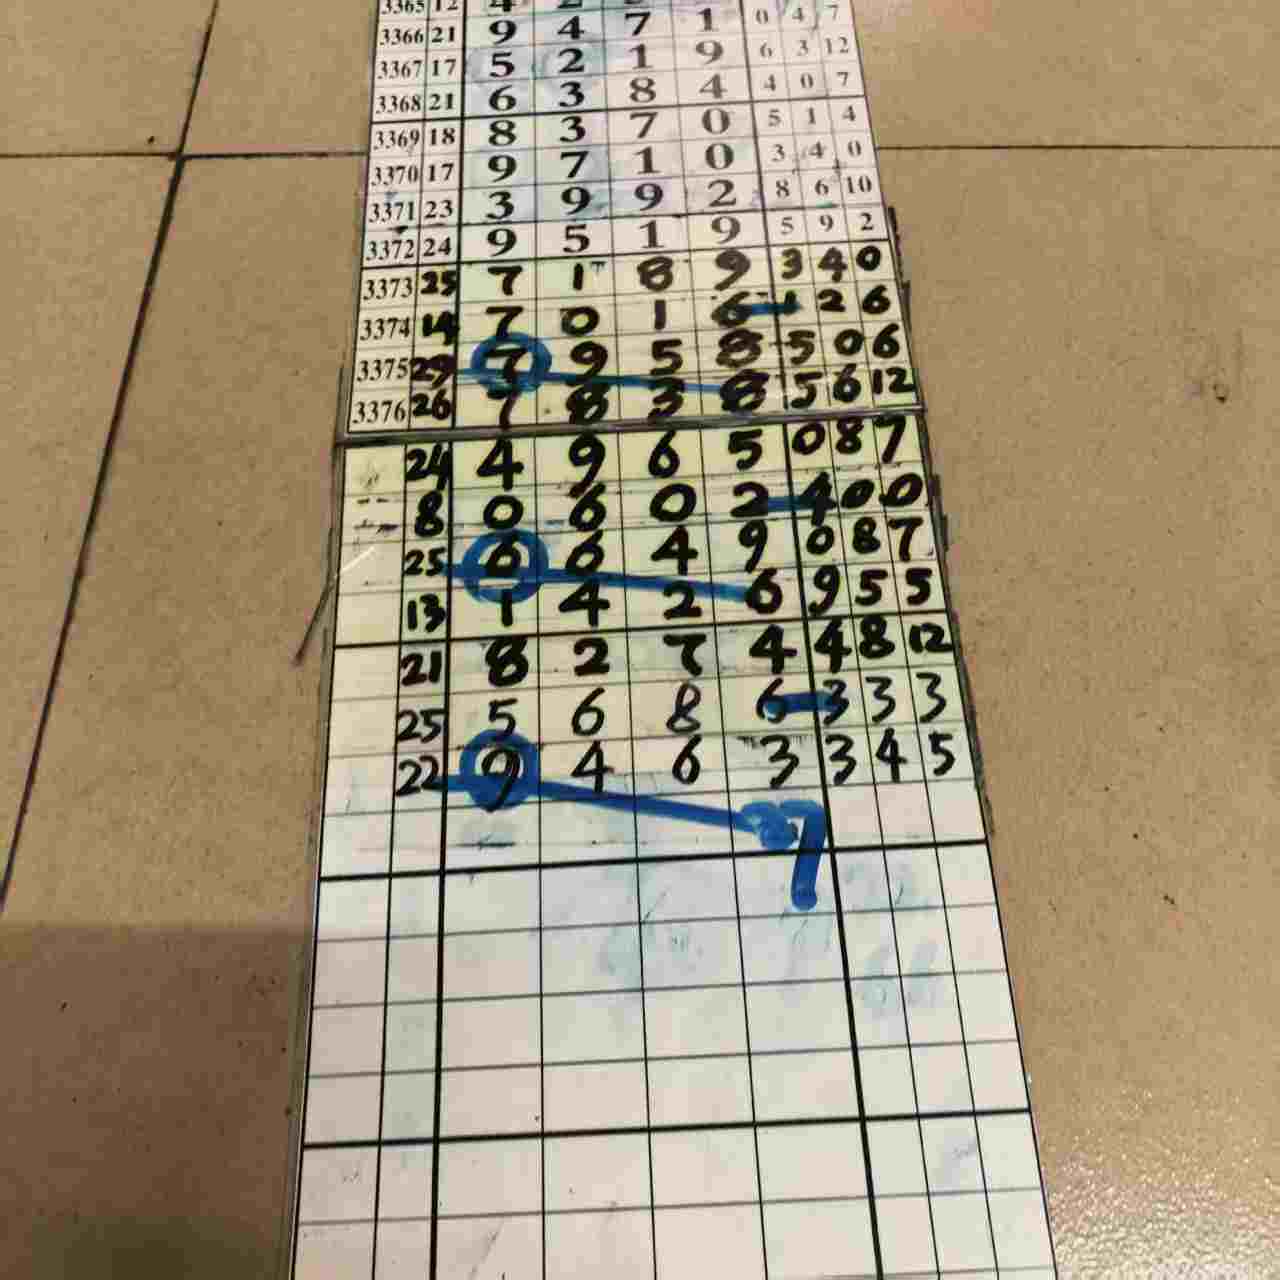 3365 12 4 2
3366 21 9 4 7 1 0 4 7
3367 17 5 2 1 9 6 3 12
3368 21 6 3 8 4 4 0 7
3369 18 8 3 7 0 5 1 4
3370 17 9 7 1 0 3 4 0
3371 23 3 9 9 2 8 6 10
3372 24 9 5 1 9 5 9 2
3373 25 7 1 8 9 3 4 0
3374 14 7 0 1 6 1 2 6
3375 29 7 9 5 8 5 0 6
3376 26 7 8 3 8 5 6 12
24 4 9 6 5 0 8 7
8 0 6 0 2 4 0 0
25 6 6 4 9 0 8 7
13 1 4 2 6 9 5 5
21 8 2 7 4 4 8 12
25 5 6 8 6 3 3 3
22 9 4 6 3 3 4 5
7